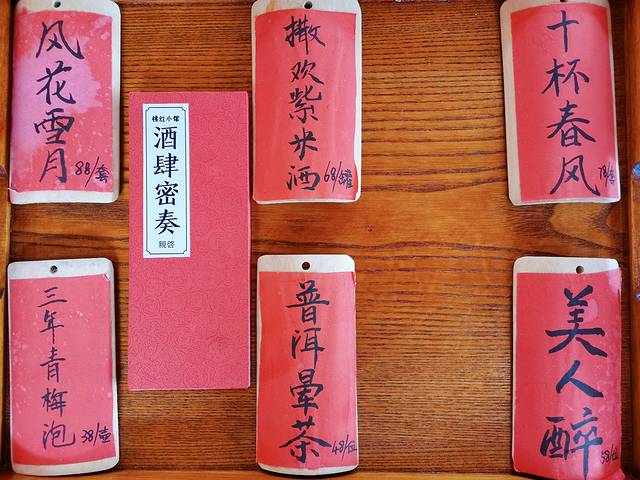 风花雪月
88/套
酒肆密奏
親啓
撒欢紫米酒
68/罐
十杯春风
78/套
三年青梅泡
38/壶
普洱晕茶
48/位
美人醉
58/位